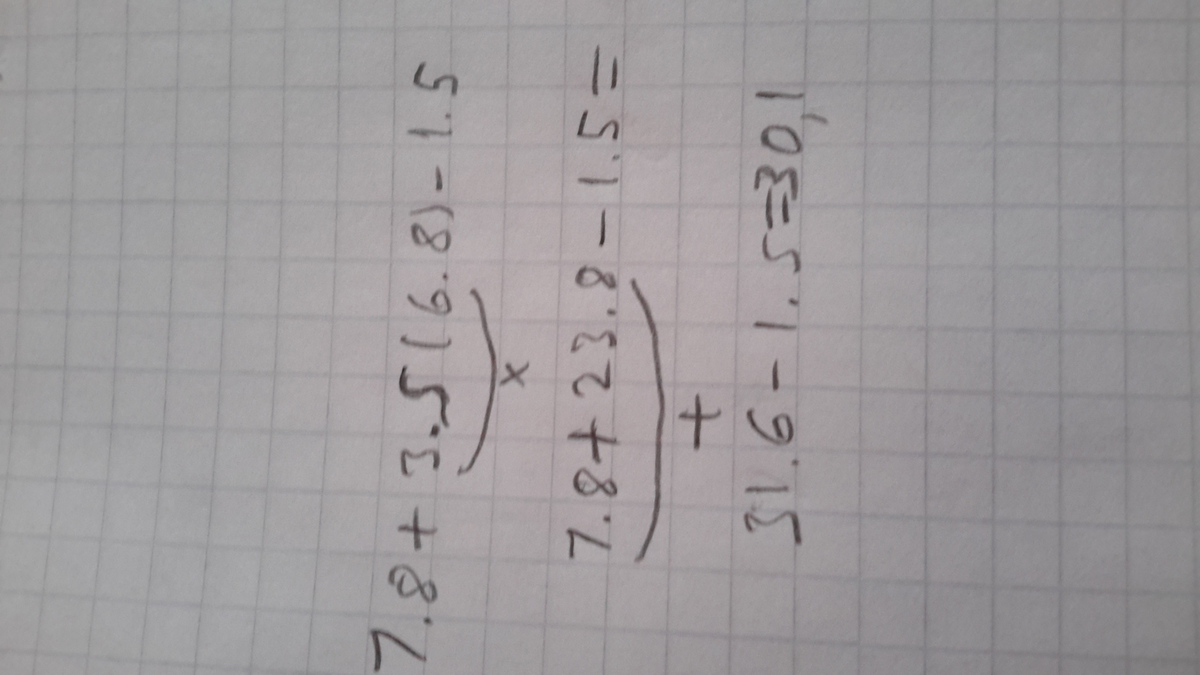 7.8 + 3.5(6.8) - 1.5
x
7.8 + 23.8 - 1.5 =
+
31.6 - 1.5 = 30,1